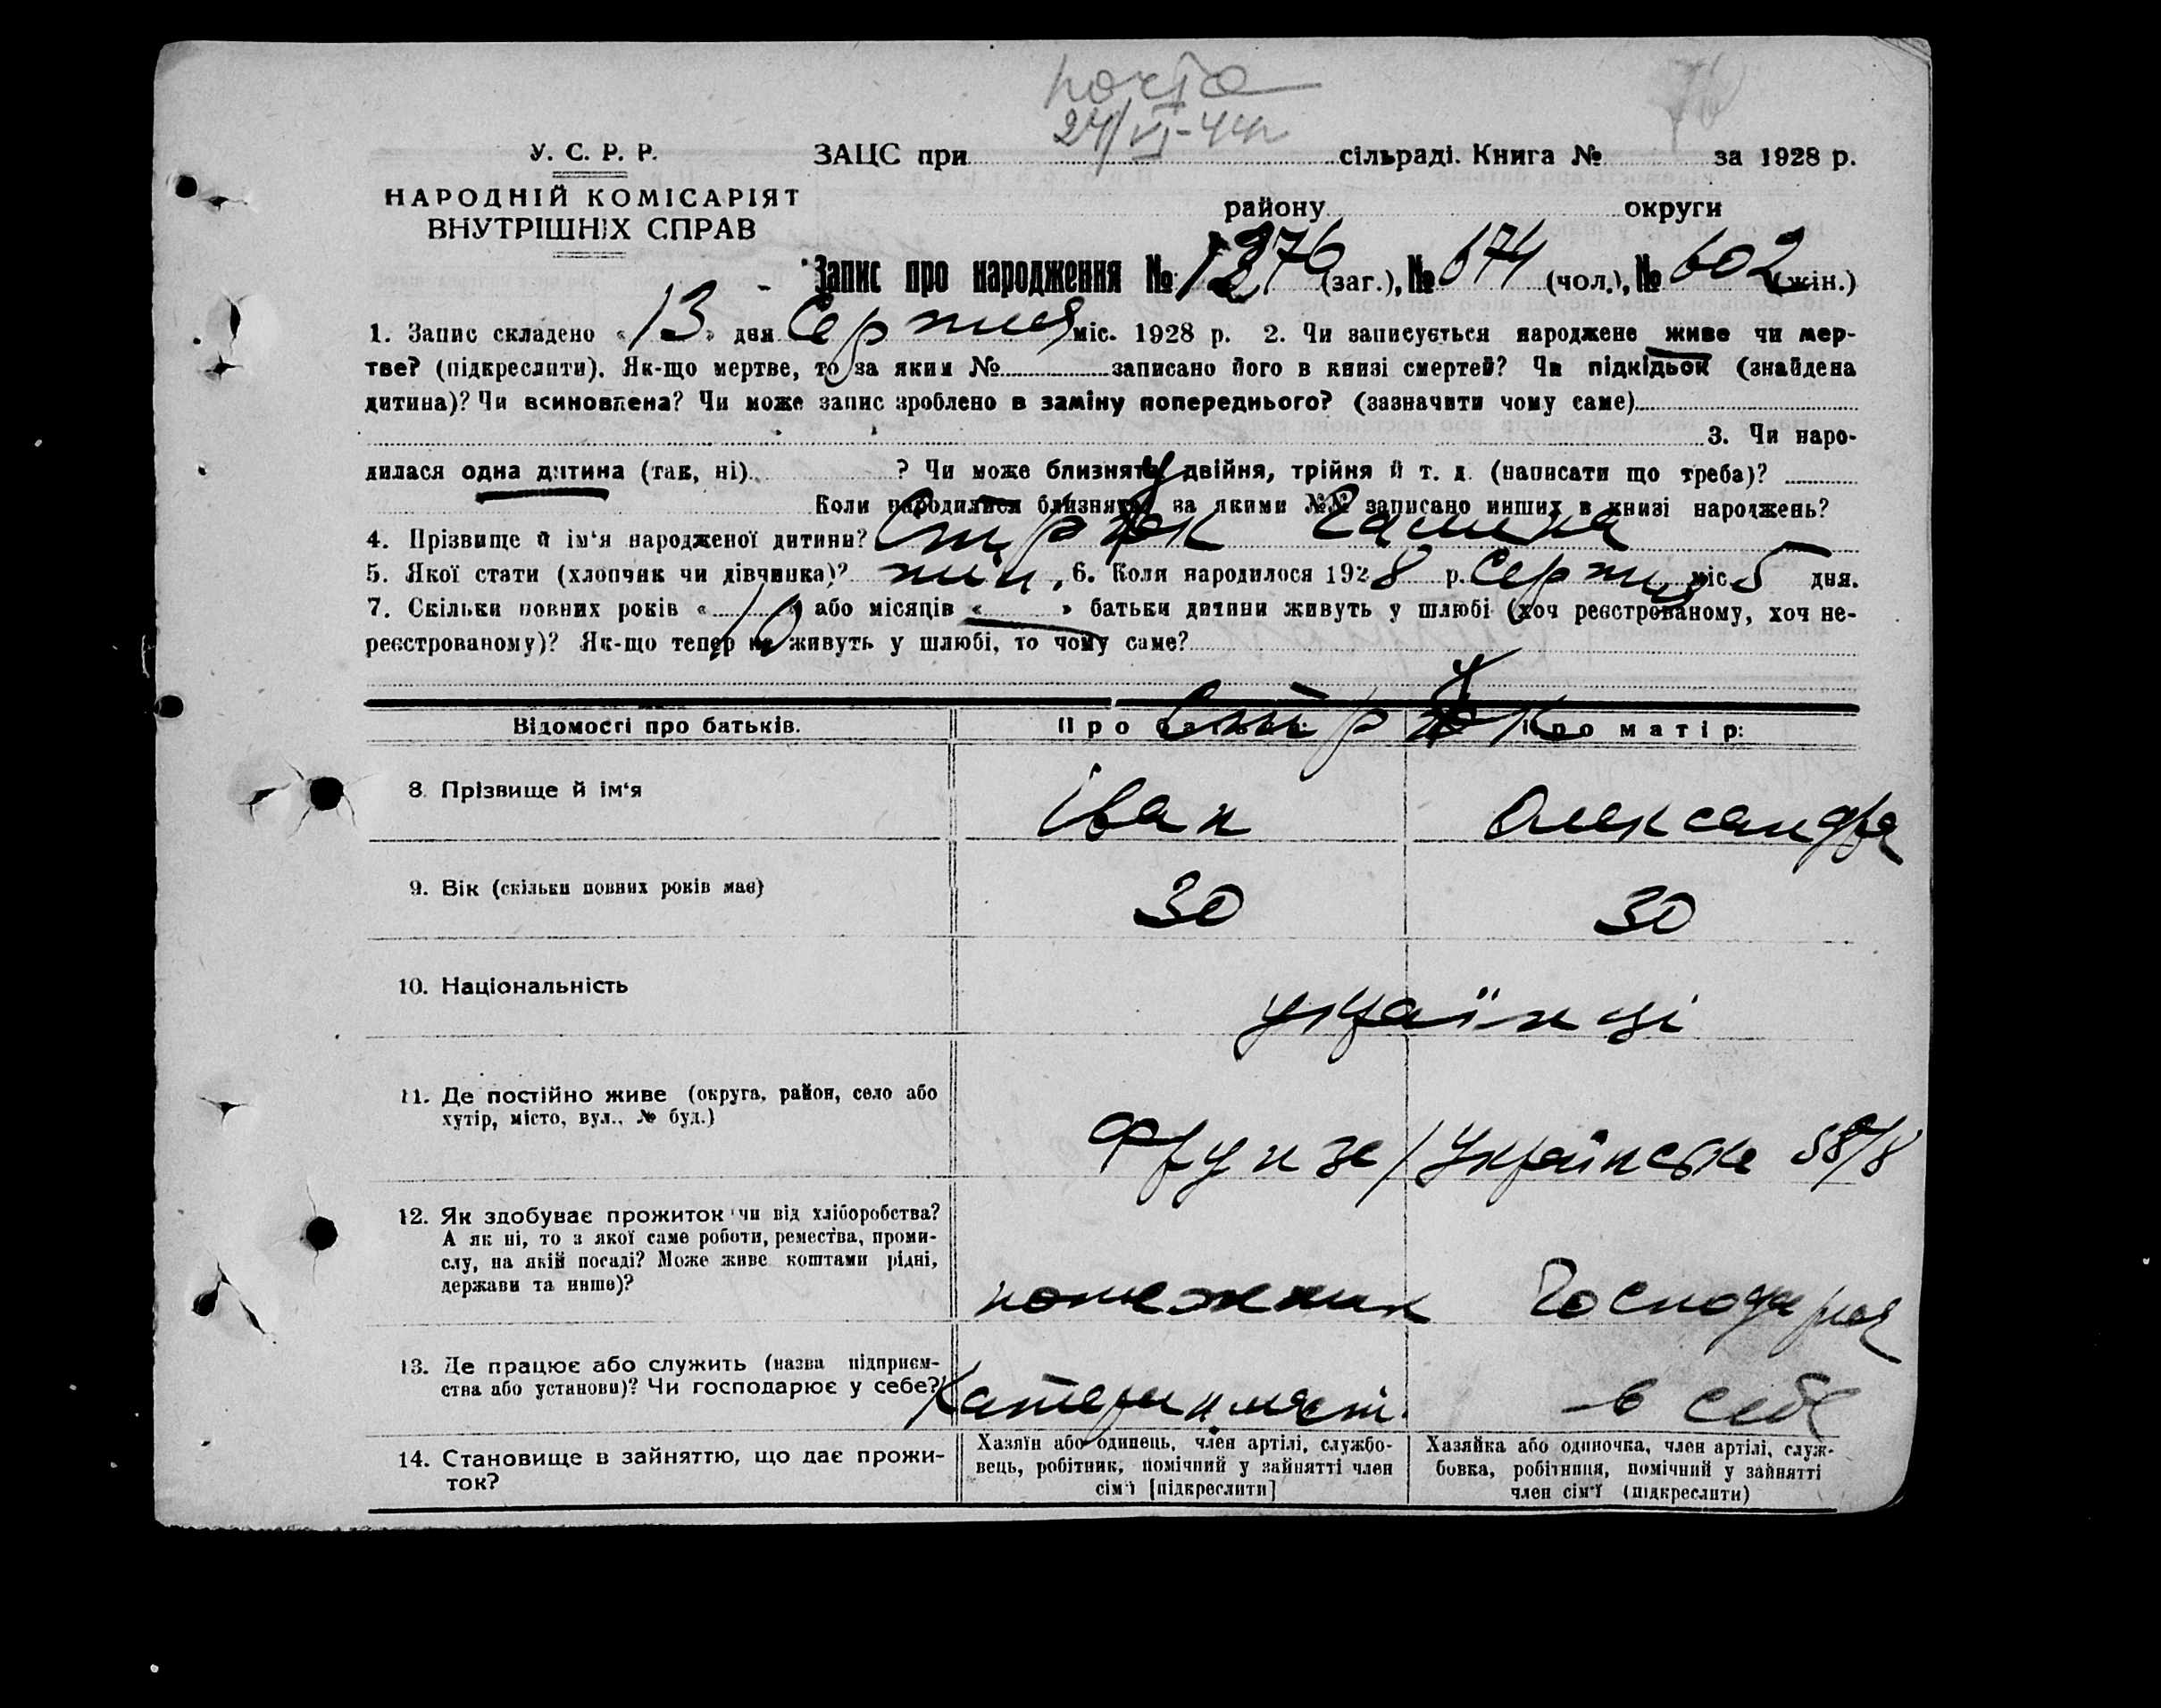 почта
24/VI-44г
76
У. С. Р. Р.
НАРОДНІЙ КОМІСАРІЯТ
ВНУТРІШНІХ СПРАВ
ЗАЦС при сільраді. Книга № за 1928 р.
району округи
Запис про народження № 1276 (заг.), № 674 (чол.), № 602 (жін.)
1. Запис складено « 13 » дня Серпня міс. 1928 р. 2. Чи записується народжене живе чи мер-
тве? (підкреслити). Як-що мертве, то за яким № записано його в книзі смертей? Чи підкідьок (знайдена
дитина)? Чи всиновлена? Чи може запис зроблено в заміну попереднього? (зазначити чому саме)
3. Чи наро-
дилася одна дитина (так, ні). ? Чи може близнята, двійня, трійня й т. д. (написати що треба)?
Коли народилися близнята, за якими №№ записано инших в книзі народжень?
4. Прізвище й ім'я народженої дитини? Галина
5. Якої стати (хлопчик чи дівчинка)? жін. 6. Коли народилося 1928 р. Серпня міс. 5 дня.
7. Скільки повних років « 10 » або місяців « » батьки дитини живуть у шлюбі (хоч реєстрованому, хоч не-
реєстрованому)? Як-що тепер не живуть у шлюбі, то чому саме?
Відомості про батьків. Про батька: Про матір:
8. Прізвище й ім'я Іван Олександра
9. Вік (скільки повних років має) 30 30
10. Національність українці
11. Де постійно живе (округа, район, село або
хутір, місто, вул., № буд.) Фрунзе / Українська 58/8
12. Як здобуває прожиток чи від хліборобства?
А як ні, то з якої саме роботи, ремества, проми-
слу, на якій посаді? Може живе коштами рідні,
держави та инше)? пожежник Господарка
13. Де працює або служить (назва підприєм-
ства або установи)? Чи господарює у себе? в себе
14. Становище в зайняттю, що дає прожи-
ток?
Хазяїн або одинець, член артілі, службо-
вець, робітник, помічний у зайнятті член
сім'ї [підкреслити]
Хазяйка або одиночка, член артілі, служ-
бовка, робітниця, помічний у зайнятті
член сім'ї (підкреслити)